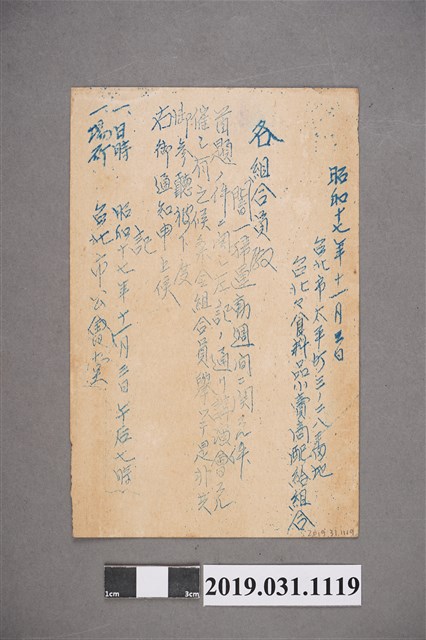 昭和十七年十一月三日
台北市太平町三ノ二八番地
台北々食料品小賣商配給組合
各組合員殿
闇一掃運動週間ニ関スル件
首題ノ件ニ関シ左記ノ通リ講演會ヲ
催シ有之候条全組合員舉ツテ是非共
御參聽被下度
右御通知申上候
記
一、日時 昭和十七年十一月三日 午后七時
一、場所 台北市公會堂
2019.31.1119
1cm 3cm
2019.031.1119